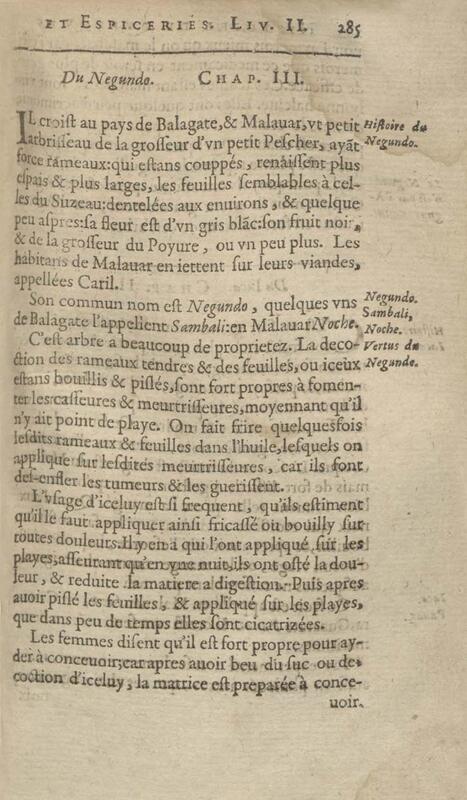 ET ESPICERIES. LIV. II. 285
Du Negundo. CHAP. III.
IL croist au pays de Balagate, & Malauar, vt petit
arbrisseau de la grosseur d'vn petit Pescher, ayāt
force rameaux: qui estans couppés, renaissent plus
espais & plus larges, les feuilles semblables à cel-
les du Suzeau: dentelées aux enuirons, & quelque
peu aspres: sa fleur est d'vn gris blāc: son fruit noir,
& de la grosseur du Poyure, ou vn peu plus. Les
habitans de Malauar en iettent sur leurs viandes,
appellées Caril.
Histoire du
Negundo.
Son commun nom est Negundo, quelques vns
de Balagate l'appellent Sambali: en Malauar Noche.
Negundo.
Sambali,
Noche.
C'est arbre a beaucoup de proprietez. La deco-
ction des rameaux tendres & des feuilles, ou iceux
estans bouillis & pislés, sont fort propres à fomen-
ter les casseures & meurtrisseures, moyennant qu'il
n'y ait point de playe. On fait frire quelquesfois
lesdits rameaux & feuilles dans l'huile, lesquels on
applique sur lesdites meurtrisseures, car ils font
des-enfler les tumeurs & les guerissent.
Vertus du
Negundo.
L'vsage d'iceluy est si frequent, qu'ils estiment
qu'il le faut appliquer ainsi fricassé ou bouilly sur
toutes douleurs. Il y en a qui l'ont appliqué sur les
playes, asseurant qu'en vne nuit, ils ont osté la dou-
leur, & reduite la matiere a digestion. Puis apres
auoir pislé les feuilles, & appliqué sur les playes,
que dans peu de temps elles sont cicatrizées.
Les femmes disent qu'il est fort propre pour ay-
der à conceuoir; car apres auoir beu du suc ou de-
coction d'iceluy, la matrice est preparée à conce-
uoir.